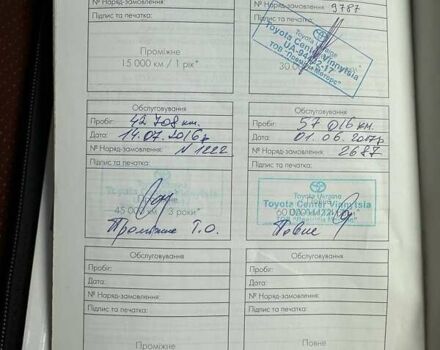 № Наряд-замовлення:
Підпис та печатка:
Проміжне
15 000 км / 1 рік*
№ Наряд-замовлення: 9787
Підпис та печатка:
Toyota Center Vinnytsia
30
Обслуговування
Пробіг: 42 708 км.
Дата: 14.07.2016р
№ Наряд-замовлення: N 1222
Підпис та печатка:
45 000 км 3 роки*
Проміжне Т.О.
Обслуговування
Пробіг: 57 016 км.
Дата: 01.06.2017р
№ Наряд-замовлення: 2687
Підпис та печатка:
Toyota Ukraine
Toyota Center Vinnytsia
60
Повне
Обслуговування
Пробіг:
Дата:
№ Наряд-замовлення:
Підпис та печатка:
Проміжне
Обслуговування
Пробіг:
Дата:
№ Наряд-замовлення:
Підпис та печатка:
Повне